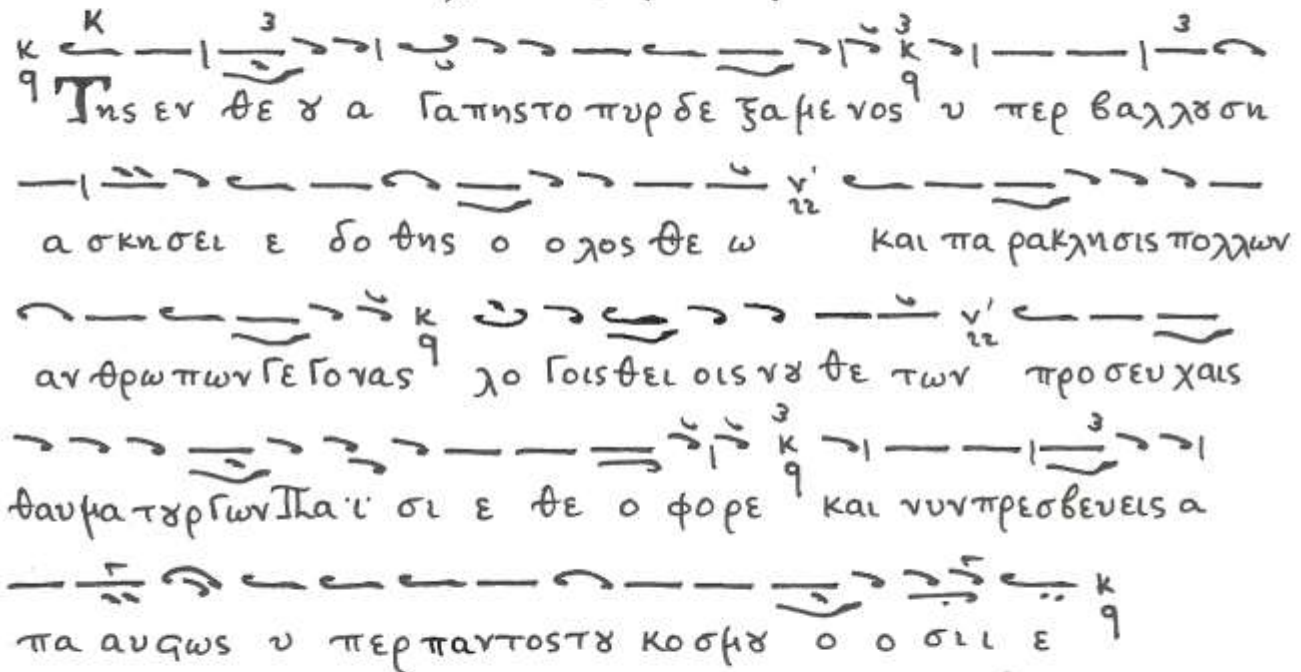 Της εν θε ȣ α Γαπης το πυρ δε ξα με νος υ περ βαλλȣση
α σκησει ε δο θης ο ολος θε ω και πα ρακλησις πολλων
αν θρω πων ΓεΓονας λο Γοις θει οις νȣ θε των προ σευ χαις
θαυμα τȣρΓων Πα ϊ σι ε θε ο φορε και νυν πρεσβευεις α
πα αυϛως υ περ παντος τȣ κοσμȣ ο ο σιι ε